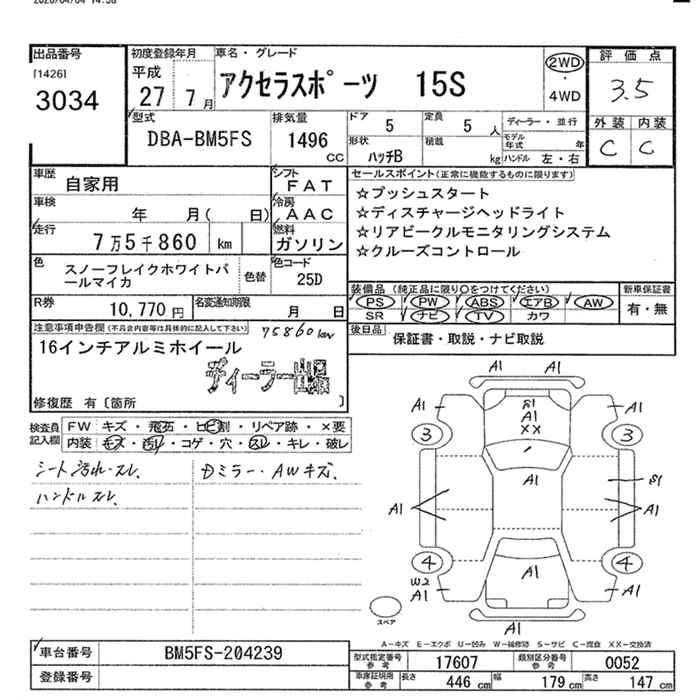 2026/04/04 14:58
出品番号
[1426]
3034
初度登録年月
平成
27 7月
車名・グレード
アクセラスポーツ 15S
2WD
・
4WD
評価点
3.5
外装 内装
C C
型式
DBA-BM5FS
排気量
1496
CC
ドア
5
定員
5 人
形状
ハッチB
積載
kg
ディーラー・並行
モデル年式 年
ハンドル 左・右
車歴
自家用
シフト
FAT
車検
年 月( 日)
冷房
AAC
走行
7万5千860 km
燃料
ガソリン
色
スノーフレイクホワイトパ
ールマイカ
色替
色コード
25D
R券
10,770円
名変通知期限
月 日
セールスポイント(正常に機能するものに限ります)
☆プッシュスタート
☆ディスチャージヘッドライト
☆リアビークルモニタリングシステム
☆クルーズコントロール
装備品 (純正品に限り○をつけてください)
PS PW ABS エアB AW
SR ナビ TV カワ
新車保証書
有・無
後日品
保証書・取説・ナビ取説
注意事項申告欄(不具合内容等は具体的に記入して下さい)
75860km
16インチアルミホイール
ディーラー出品
修復歴 有〔箇所 〕
検査員
記入欄
FW キズ・飛石・ヒビ割・リペア跡・×要
内装 キズ・汚レ・コゲ・穴・スレ・キレ・破レ
シート汚れ・スレ、
ハンドルスレ、
Dミラー・AWキズ、
A1
A1
S1
A1
XX
A1
3
3
A1
S1
A1
A1
4
4
W2
A1
A1
A1
A1
スペア
A-キズ E-エクボ U-凹み W-補修跡 S-サビ C-腐食 XX-交換済
車台番号
BM5FS-204239
登録番号
型式指定番号
参考
17607
類別区分番号
参考
0052
車庫証明用
参考
長さ 446 cm
幅 179 cm
高さ 147 cm